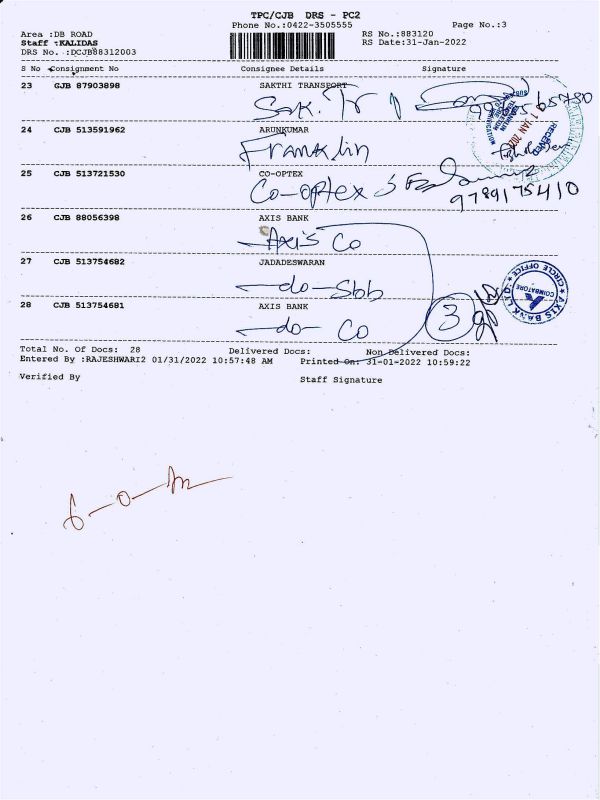 TPC/CJB DRS - PC2
Phone No.:0422-3505555 Page No.:3
Area :DB ROAD RS No.:883120
Staff :KALIDAS RS Date:31-Jan-2022
DRS No. :DCJB88312003
S No Consignment No Consignee Details Signature
23 CJB 87903898 SAKTHI TRANSPORT
Sak. Tr
24 CJB 513591962 ARUNKUMAR
Franklin
RECEIVED
25 CJB 513721530 CO-OPTEX
Co-optex
9789175410
26 CJB 88056398 AXIS BANK
Axis Co
27 CJB 513754682 JADADESWARAN
-do- Sbb
AXIS BANK LTD. CIRCLE OFFICE
COIMBATORE
28 CJB 513754681 AXIS BANK
-do- Co
3
Total No. Of Docs: 28 Delivered Docs: Non Delivered Docs:
Entered By :RAJESHWARI2 01/31/2022 10:57:48 AM Printed On: 31-01-2022 10:59:22
Verified By Staff Signature